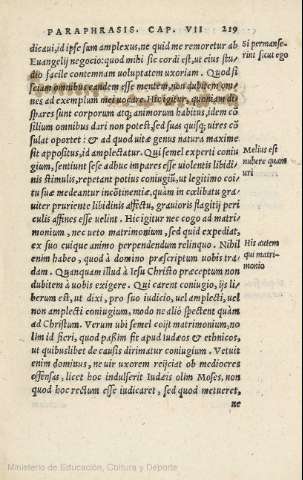 PARAPHRASIS. CAP. VII 219
dicaui, id ipse sum amplexus, ne quid me remoretur ab
Euangelij negocio: quod mihi sic cordi est, ut eius stu
dio facile contemnam uoluptatem uxoriam. Quod si
sciam omnibus eandem esse mentem, non dubitem om
nes ad exemplum mei uocare. Hic igitur, quoniam di
spares sunt corporum atq; animorum habitus, idem cõ
silium omnibus dari non potest, sed suus quisq; uires cõ
sulat oportet: & ad quod uitæ genus natura maxime
sit appositus, id amplectatur. Qui semel experti coniu
gium, sentiunt sese adhuc impares esse uiolentis libidi
nis stimulis, repetant potius coniugiũ, ut legitimo coi
tu suæ medeantur incõtinẽtiæ, quàm in cœlibatu gra
uiter prurienti libidinis affectu, grauioris flagitij peri
culis affines esse uelint. Hic igitur nec cogo ad matri
monium, nec ueto matrimonium, sed quid expediat,
ex suo cuique animo perpendendum relinquo. Nihil
enim habeo, quod à domino præscriptum uobis tra-
dam. Quanquam illud à Iesu Christo præceptum non
dubitem à uobis exigere. Qui carent coniugio, ijs li
berum est, ut dixi, pro suo iudicio, uel amplecti, uel
non amplecti coniugium, modo ne aliò spectent quàm
ad Christum. Verum ubi semel coijt matrimonium, no
lim id fieri, quod paßim fit apud Iudæos & ethnicos,
ut quibuslibet de causis dirimatur coniugium. Vetuit
enim dominus, ne uir uxorem reijciat ob mediocres
offensas, licet hoc indulserit Iudæis olim Moses, non
quod hoc rectum esse iudicaret, sed quod metueret,
ne
Si permanse-
rint sicut ego
Melius est
nubere quam
uri
His autem
qui matri-
monio
Ministerio de Educación, Cultura y Deporte